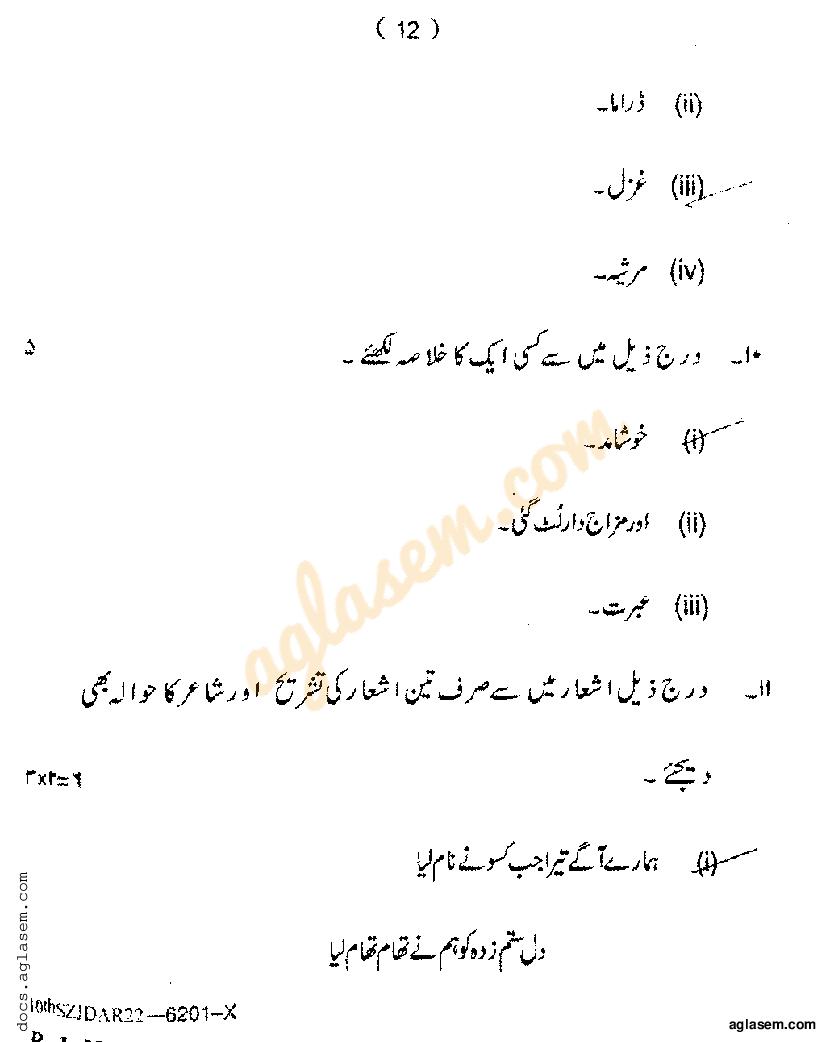 ( 12 )
(ii) ڈراما۔
(iii) غزل۔
(iv) مرثیہ۔
۱۰۔ درج ذیل میں سے کسی ایک کا خلاصہ لکھئے ۔ ۵
(i) خوشامد۔
(ii) اور مزاج دار لُٹ گئی۔
(iii) عبرت۔
۱۱۔ درج ذیل اشعار میں سے صرف تین اشعار کی تشریح اور شاعر کا حوالہ بھی
دیجئے ۔ ۳x۲=۶
(i) ہمارے آگے تیرا جب کسو نے نام لیا
دل ستم زدہ کو ہم نے تھام تھام لیا
10thSZJDAR22—6201–X
aglasem.com
docs.aglasem.com
aglasem.com